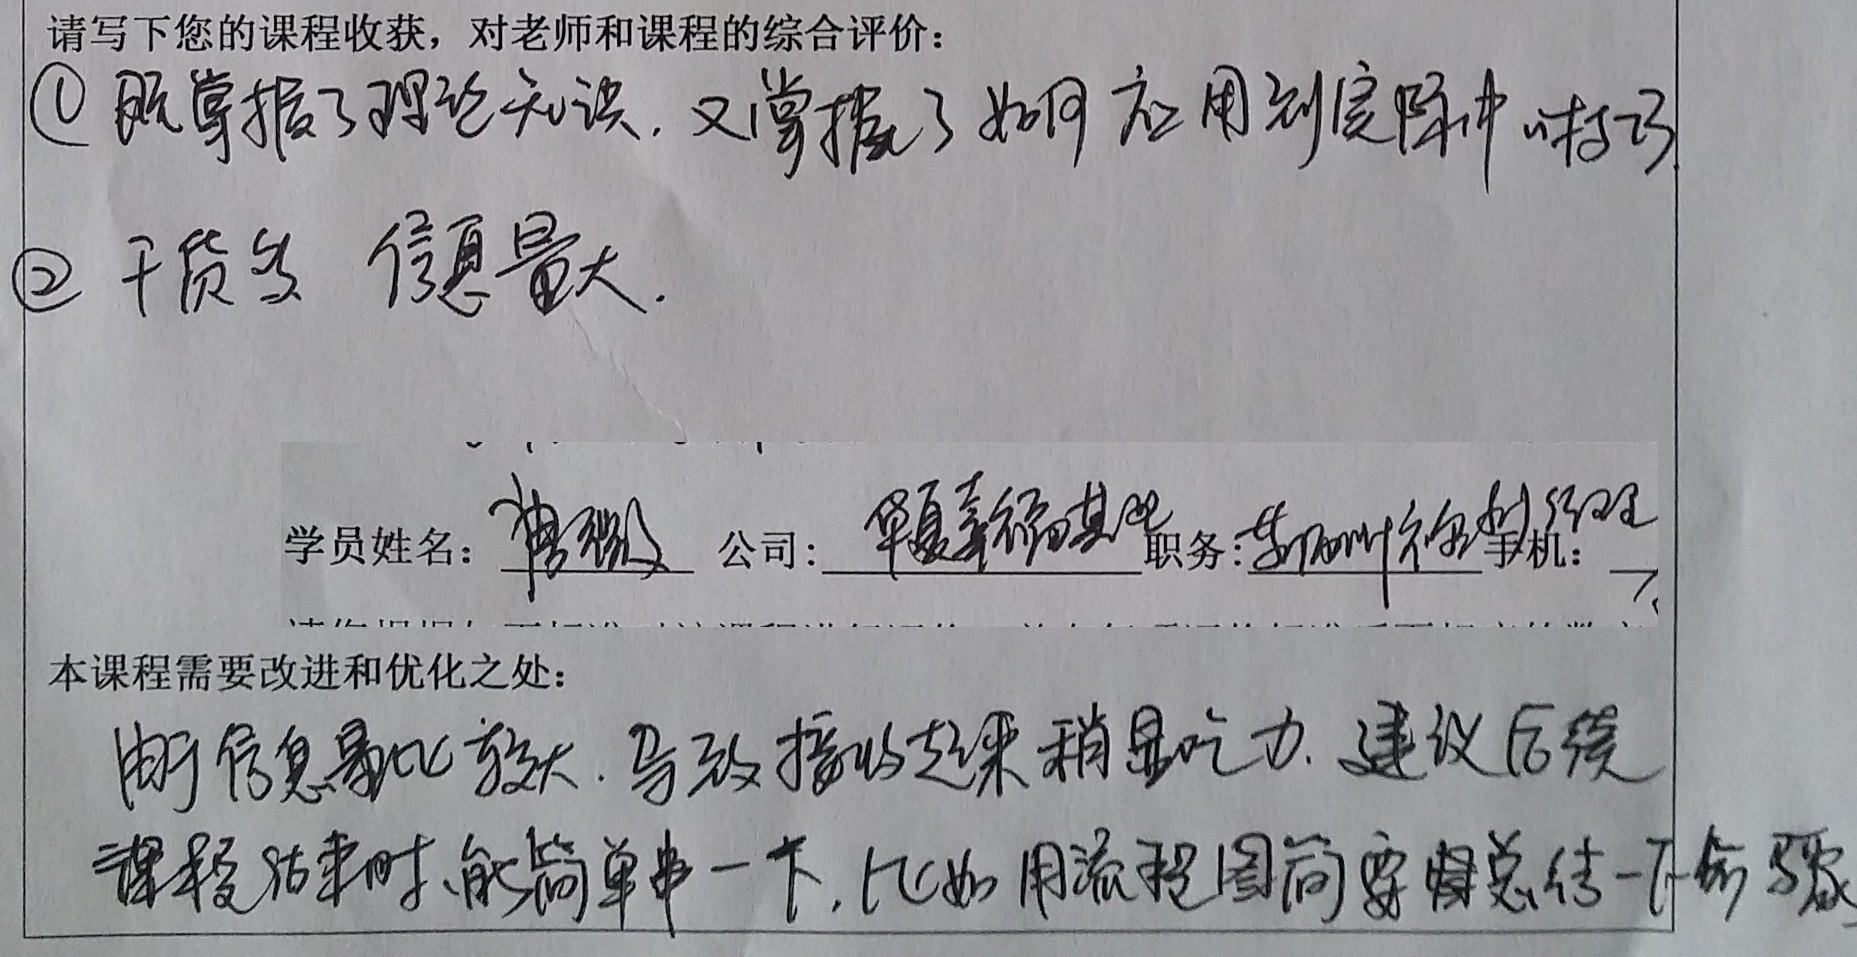 请写下您的课程收获，对老师和课程的综合评价：
① 既掌握了理论知识．又掌握了如何应用到实际中的技巧.
② 干货多 信息量大．
学员姓名： 公司：华夏幸福基业 职务： 经理 手机：
本课程需要改进和优化之处：
由于信息量比较大．导致接收起来稍显吃力．建议后续
课程结束时、能简单串一下，比如用流程图简要总结一下步骤